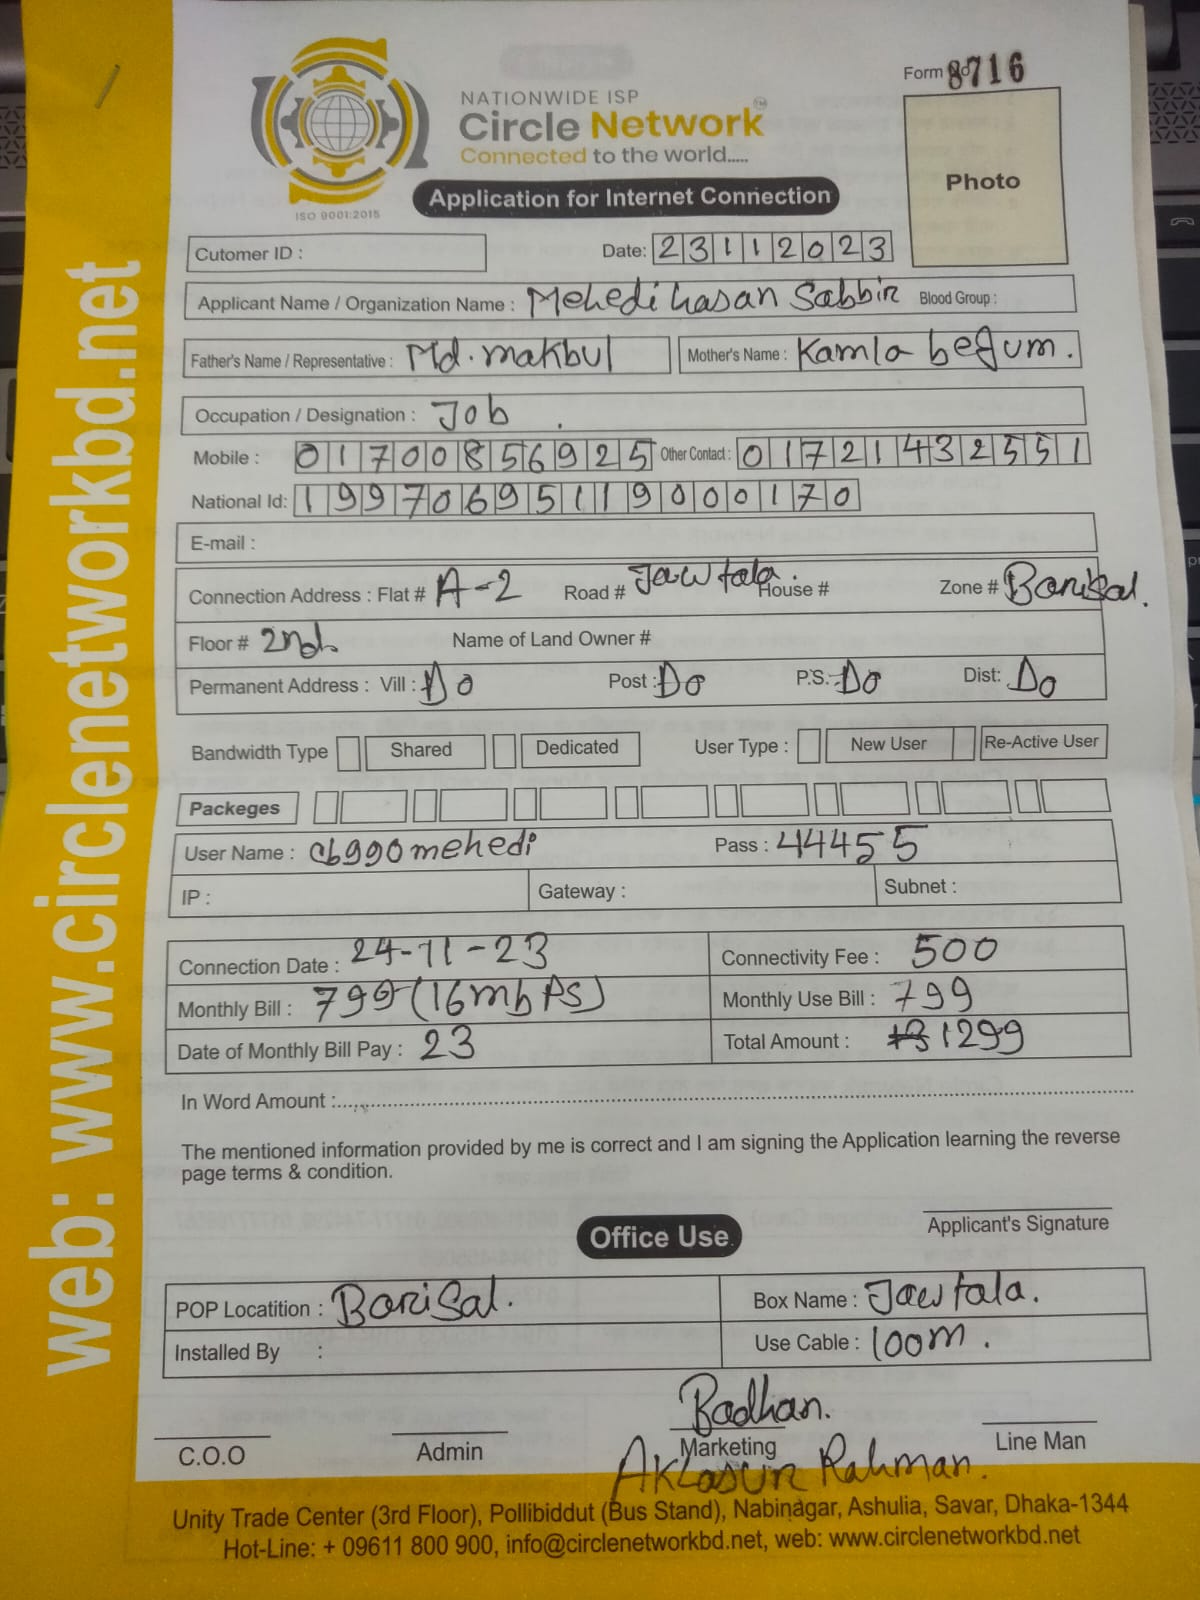 Form no 8716
NATIONWIDE ISP
Circle Network TM
Connected to the world.....
ISO 9001:2015
Application for Internet Connection
Photo
Cutomer ID :
Date: 23112023
Applicant Name / Organization Name : Mehedi hasan Sabbir Blood Group :
Father's Name / Representative : Md. makbul Mother's Name : Kamla begum.
Occupation / Designation : Job.
Mobile : 01700856925 Other Contact : 01721432551
National Id: 19970695119000170
E-mail :
Connection Address : Flat # A-2 Road # Jawtala. House # Zone # Barisal.
Floor # 2nd. Name of Land Owner #
Permanent Address : Vill : Do Post : Do P.S.: Do Dist: Do
Bandwidth Type Shared Dedicated User Type : New User Re-Active User
Packeges
User Name : cb990mehedi Pass : 44455
IP : Gateway : Subnet :
Connection Date : 24-11-23 Connectivity Fee : 500
Monthly Bill : 799 (16mbps) Monthly Use Bill : 799
Date of Monthly Bill Pay : 23 Total Amount : 1299
In Word Amount :
The mentioned information provided by me is correct and I am signing the Application learning the reverse
page terms & condition.
Applicant's Signature
Office Use
POP Locatition : Barisal. Box Name : Jawtala.
Installed By : Use Cable : 100m.
Badhan.
C.O.O Admin Marketing Line Man
Aklasur Rahman.
Unity Trade Center (3rd Floor), Pollibiddut (Bus Stand), Nabinagar, Ashulia, Savar, Dhaka-1344
Hot-Line: + 09611 800 900, info@circlenetworkbd.net, web: www.circlenetworkbd.net
web: www.circlenetworkbd.net